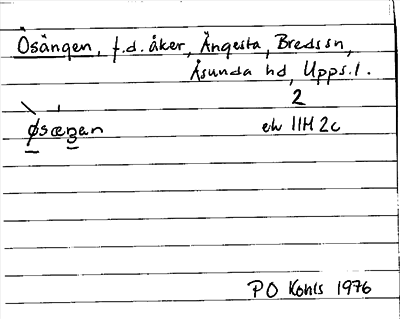 Ösängen, f.d. åker, Ängesta, Bredssn,
Åsunda hd, Upps.l.
2
øsæŋan
ek 11H 2c
PO Konls 1976